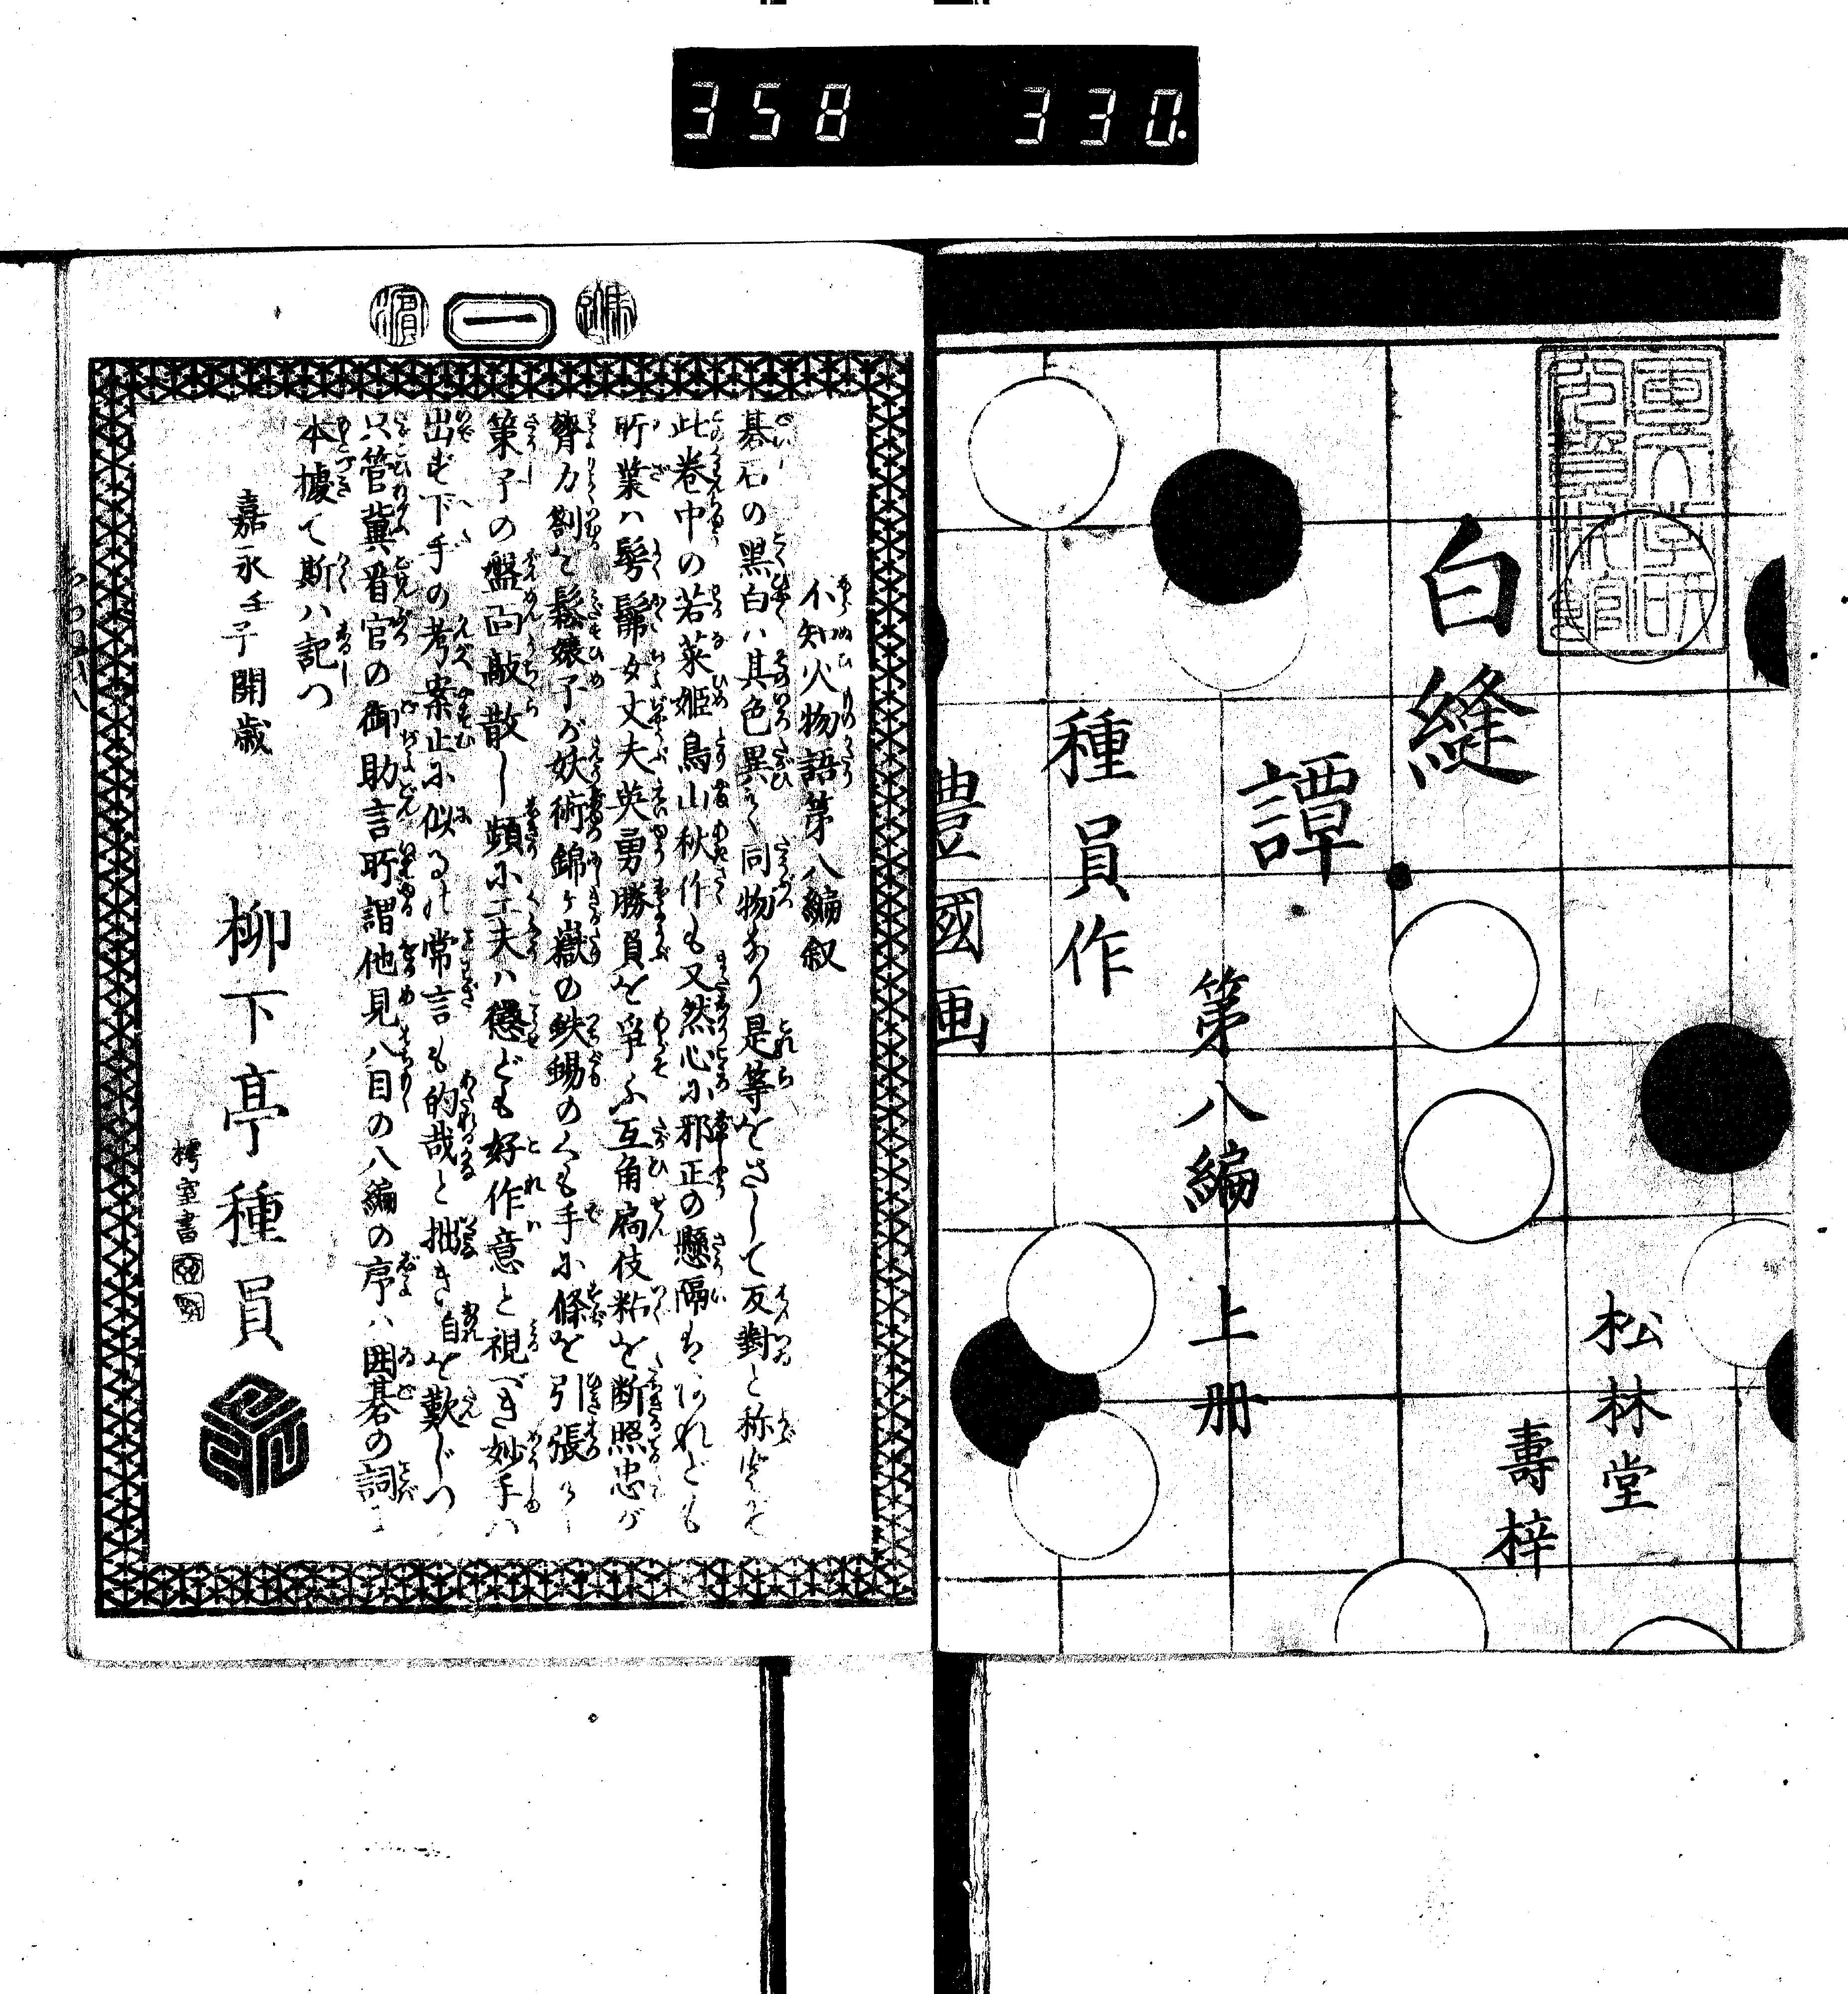 358 330.
白縫
譚
第八編
上册
種員作
豊國画
松林堂
壽梓
一
不知火物語第八編叙
碁石の黒白ハ其色異て同物あり是等をさして反對と称
此巻中の若菜姫鳥山秋作も又然心に邪正の懸隔あれども
所業ハ髣髴女丈夫英勇勝負を爭ふ互角扁伎粘を断照忠が
膂力割て鬆嫁子が妖術錦ヶ嶽の蛛のくも手に條を引張
策子の盤面敲散し頻に工夫ハ凝ども好作意と視べき妙手ハ
出ず下手の考案止に似るの常言も的哉と拙き自を歎じつ
只管冀看官の御助言所謂他見八目の八編の序ハ囲碁の詞
本據て斯ハ記つ
嘉永壬子開歳
柳下亭種員
室書